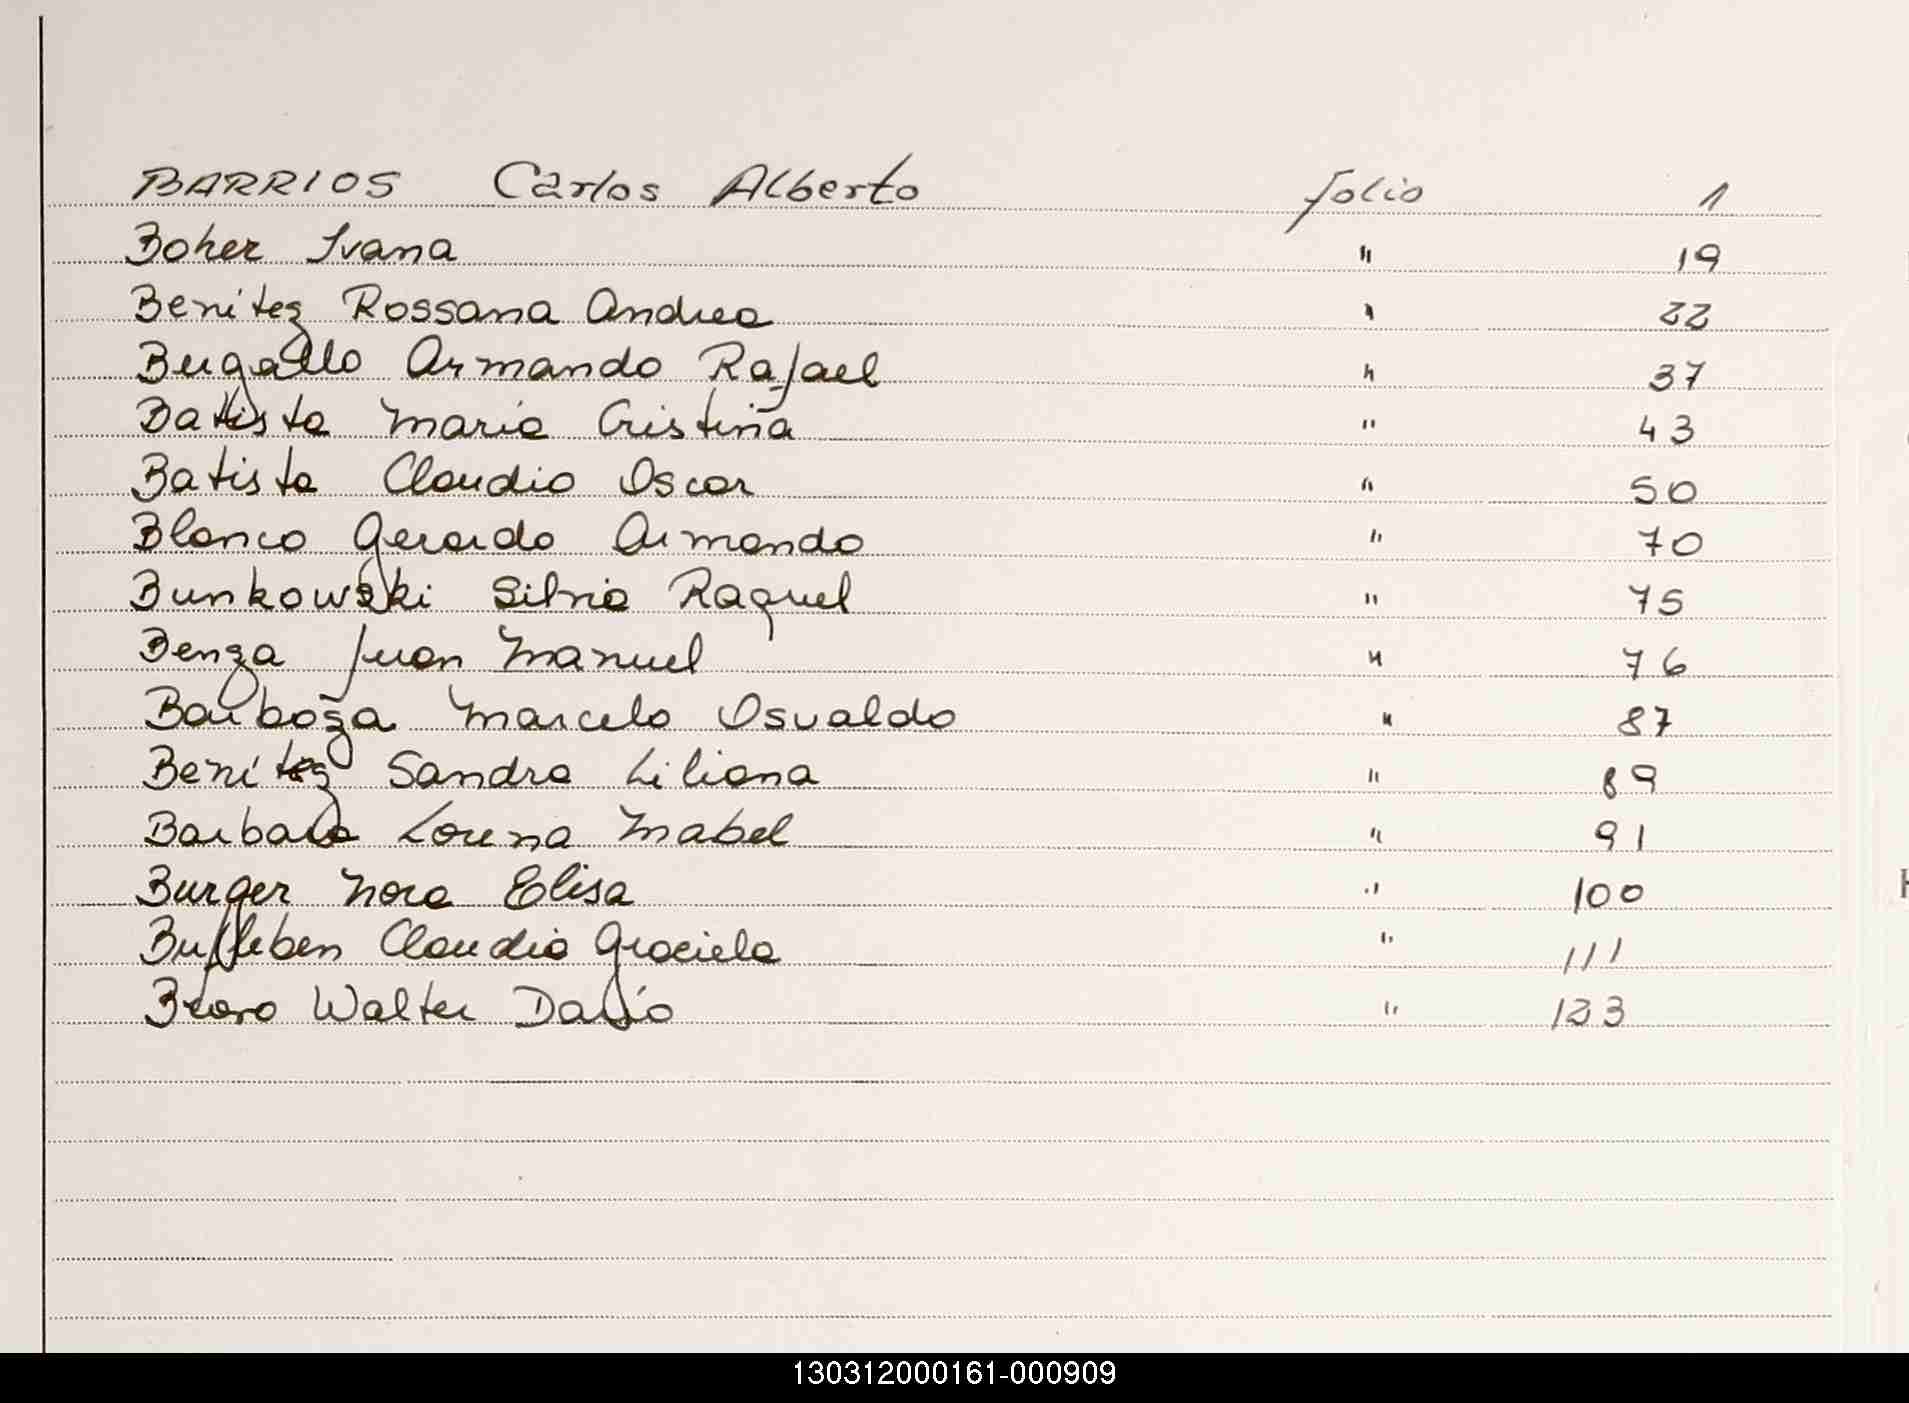 BARRIOS Carlos Alberto folio 1
Boher Ivana " 19
Benítez Rossana Andrea " 22
Bugallo Armando Rafael " 37
Batista Maria Cristina " 43
Batista Claudio Oscar " 50
Blanco Gerardo Armando " 70
Bunkowski Silvia Raquel " 75
Benza Juan Manuel " 76
Barboza Marcelo Osvaldo " 87
Benítez Sandra Liliana " 89
Barbara Lorena Mabel " 91
Burger Nora Elisa " 100
Claudia Graciela " 111
Bravo Walter Darío " 123
130312000161-000909